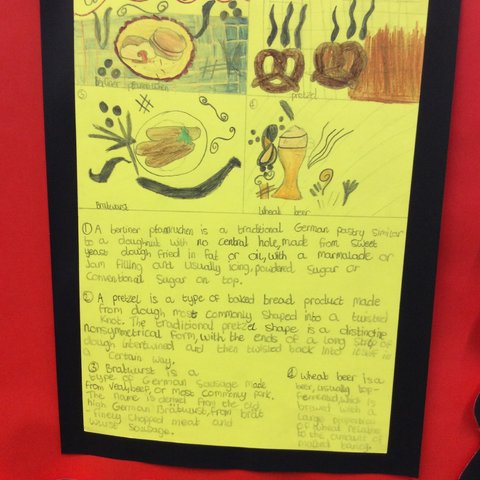 berliner pfannkuchen
pretzel
③
④
Bratwurst
Wheat beer
① A berliner pfannkuchen is a traditional German pastry similar
to a doughnut with no central hole, made from sweet
yeast dough fried in fat or oil, with a marmalade or
Jam filling and usually icing, powdered sugar or
conventional sugar on top.
② A pretzel is a type of baked bread product made
from dough most commonly shaped into a twisted
knot. The traditional pretzel shape is a distinctive
nonsymmetrical form, with the ends of a long strip of
dough intertwined and then twisted back into itself in
a certain way.
③ Bratwurst is a
type of German sausage made
from veal, beef, or most commonly pork.
The name is derived from the old
high German Bratwurst, from brat
- finely chopped meat and
wurst sausage.
④ wheat beer is a
beer, usually top-
fermented, which is
brewed with a
large proportion
of wheat relative
to the amount of
malted barley.